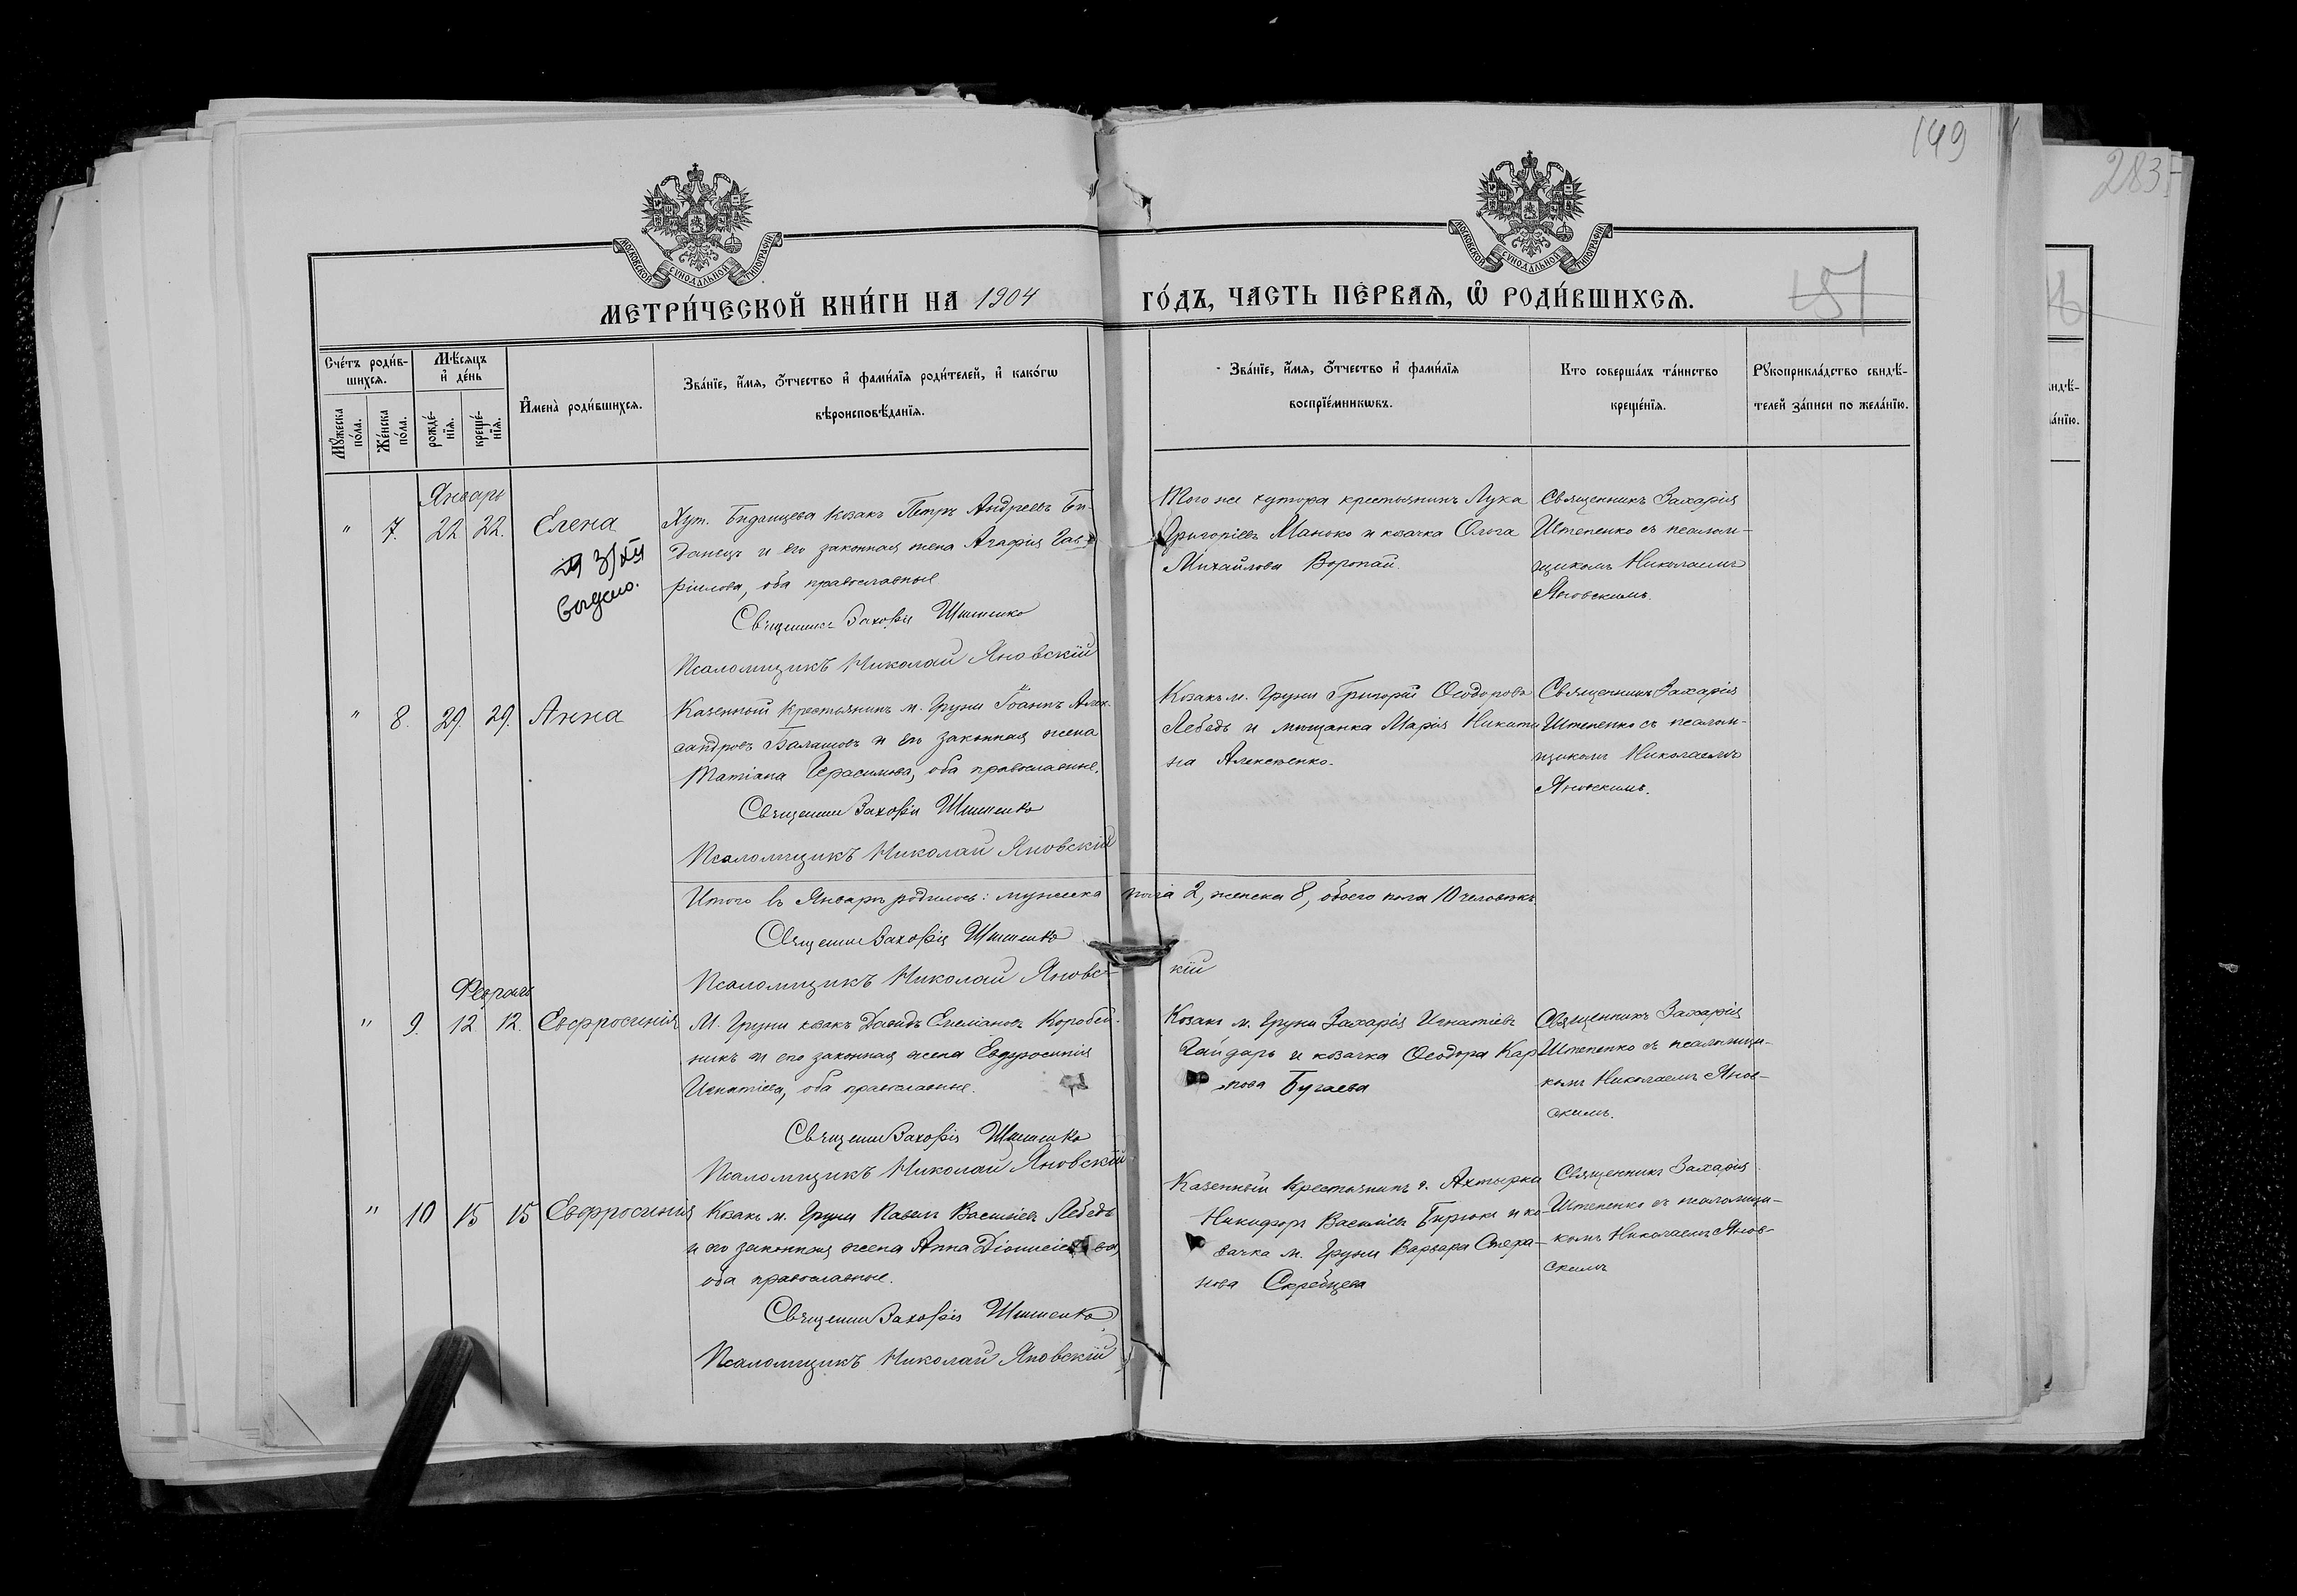 149
283
МОСКОВСКОЙ СѴНОДАЛЬНОЙ ТИПОГРАФІИ
МОСКОВСКОЙ СѴНОДАЛЬНОЙ ТИПОГРАФІИ
МЕТРИ́ЧЕСКОЙ КНИ́ГИ НА 1904 ГО́ДЪ, ЧАСТЬ ПЕ́РВАѦ, Ѡ҆ РОДИ́ВШИХСѦ.
Сче́тъ роди́в-
шихсѧ.
Мѣ́сѧцъ
и҆ де́нь
Мꙋ́жеска по́ла.
Же́нска по́ла.
рожде́-нїѧ.
креще́-нїѧ.
И҆мена̀ роди́вшихсѧ.
Зва́нїе, и҆́мѧ, ѻ҆́тчество и҆ фами́лїѧ роди́телей, и҆ како́гѡ
вѣроисповѣ́данїѧ.
Зва́нїе, и҆́мѧ, ѻ҆́тчество и҆ фами́лїѧ
воспрїе́мникѡвъ.
Кто соверша́лъ та́инство
креще́нїѧ.
Рꙋкоприкла́дство свидѣ́-
телей за́писи по жела́нїю.
Январь
" 7. 22 22. Елена
Хут. Биданцева козакъ Петръ Андреевъ Би-
данецъ и его законная жена Агафія Гав-
ріилова, оба православные
Священникъ Захарія Штепенко
Псаломщикъ Николай Яновскій
Того же хутора крестьянинъ Лука
Григоріевъ Манько и козачка Ольга
Михайлова Воропай.
Священникъ Захарія
Штепенко съ псалом-
щикомъ Николаемъ
Яновскимъ.
" 8. 29 29. Анна
Казенный крестьянинъ м. Груни Іоаннъ Алек-
сандровъ Балашовъ и его законная жена
Татіана Герасимова, оба православные.
Священникъ Захарія Штепенко
Псаломщикъ Николай Яновскій
Козакъ м. Груни Григорій Ѳеодоровъ
Лебедь и мѣщанка Марія Никити
на Алексѣенко.
Священникъ Захарія
Штепенко съ псалом-
щикомъ Николаемъ
Яновскимъ.
Итого въ Январѣ родилось: мужеска пола 2, женска 8, обоего пола 10 человѣкъ.
Священникъ Захарія Штепенко
Псаломщикъ Николай Яновс-кій
Февраль
" 9. 12 12. Евфросинія
М. Груни козакъ Давидъ Емеліановъ Коробей-
никъ и его законная жена Евфросинія
Игнатіева, оба православные.
Священникъ Захарія Штепенко
Псаломщикъ Николай Яновскій
Козакъ м. Груни Захарія Игнатіевъ
Гайдарь и козачка Ѳеодора Кар
пова Бугаева
Священникъ Захарія
Штепенко съ псаломщи-
комъ Николаемъ Янов-
скимъ.
" 10 15 15 Евфросинія
Козакъ м. Груни Павелъ Васильевъ Лебедь
и его законная жена Анна Діонисіева,
оба православные.
Священникъ Захарія Штепенко
Псаломщикъ Николай Яновскій
Казенный крестьянинъ г. Ахтырки
Никифоръ Васильевъ Бирюкъ и ко-
зачка м. Груни Варвара Стефа-
нова Скребцева
Священникъ Захарія
Штепенко съ псаломщи-
комъ Николаемъ Янов-
скимъ